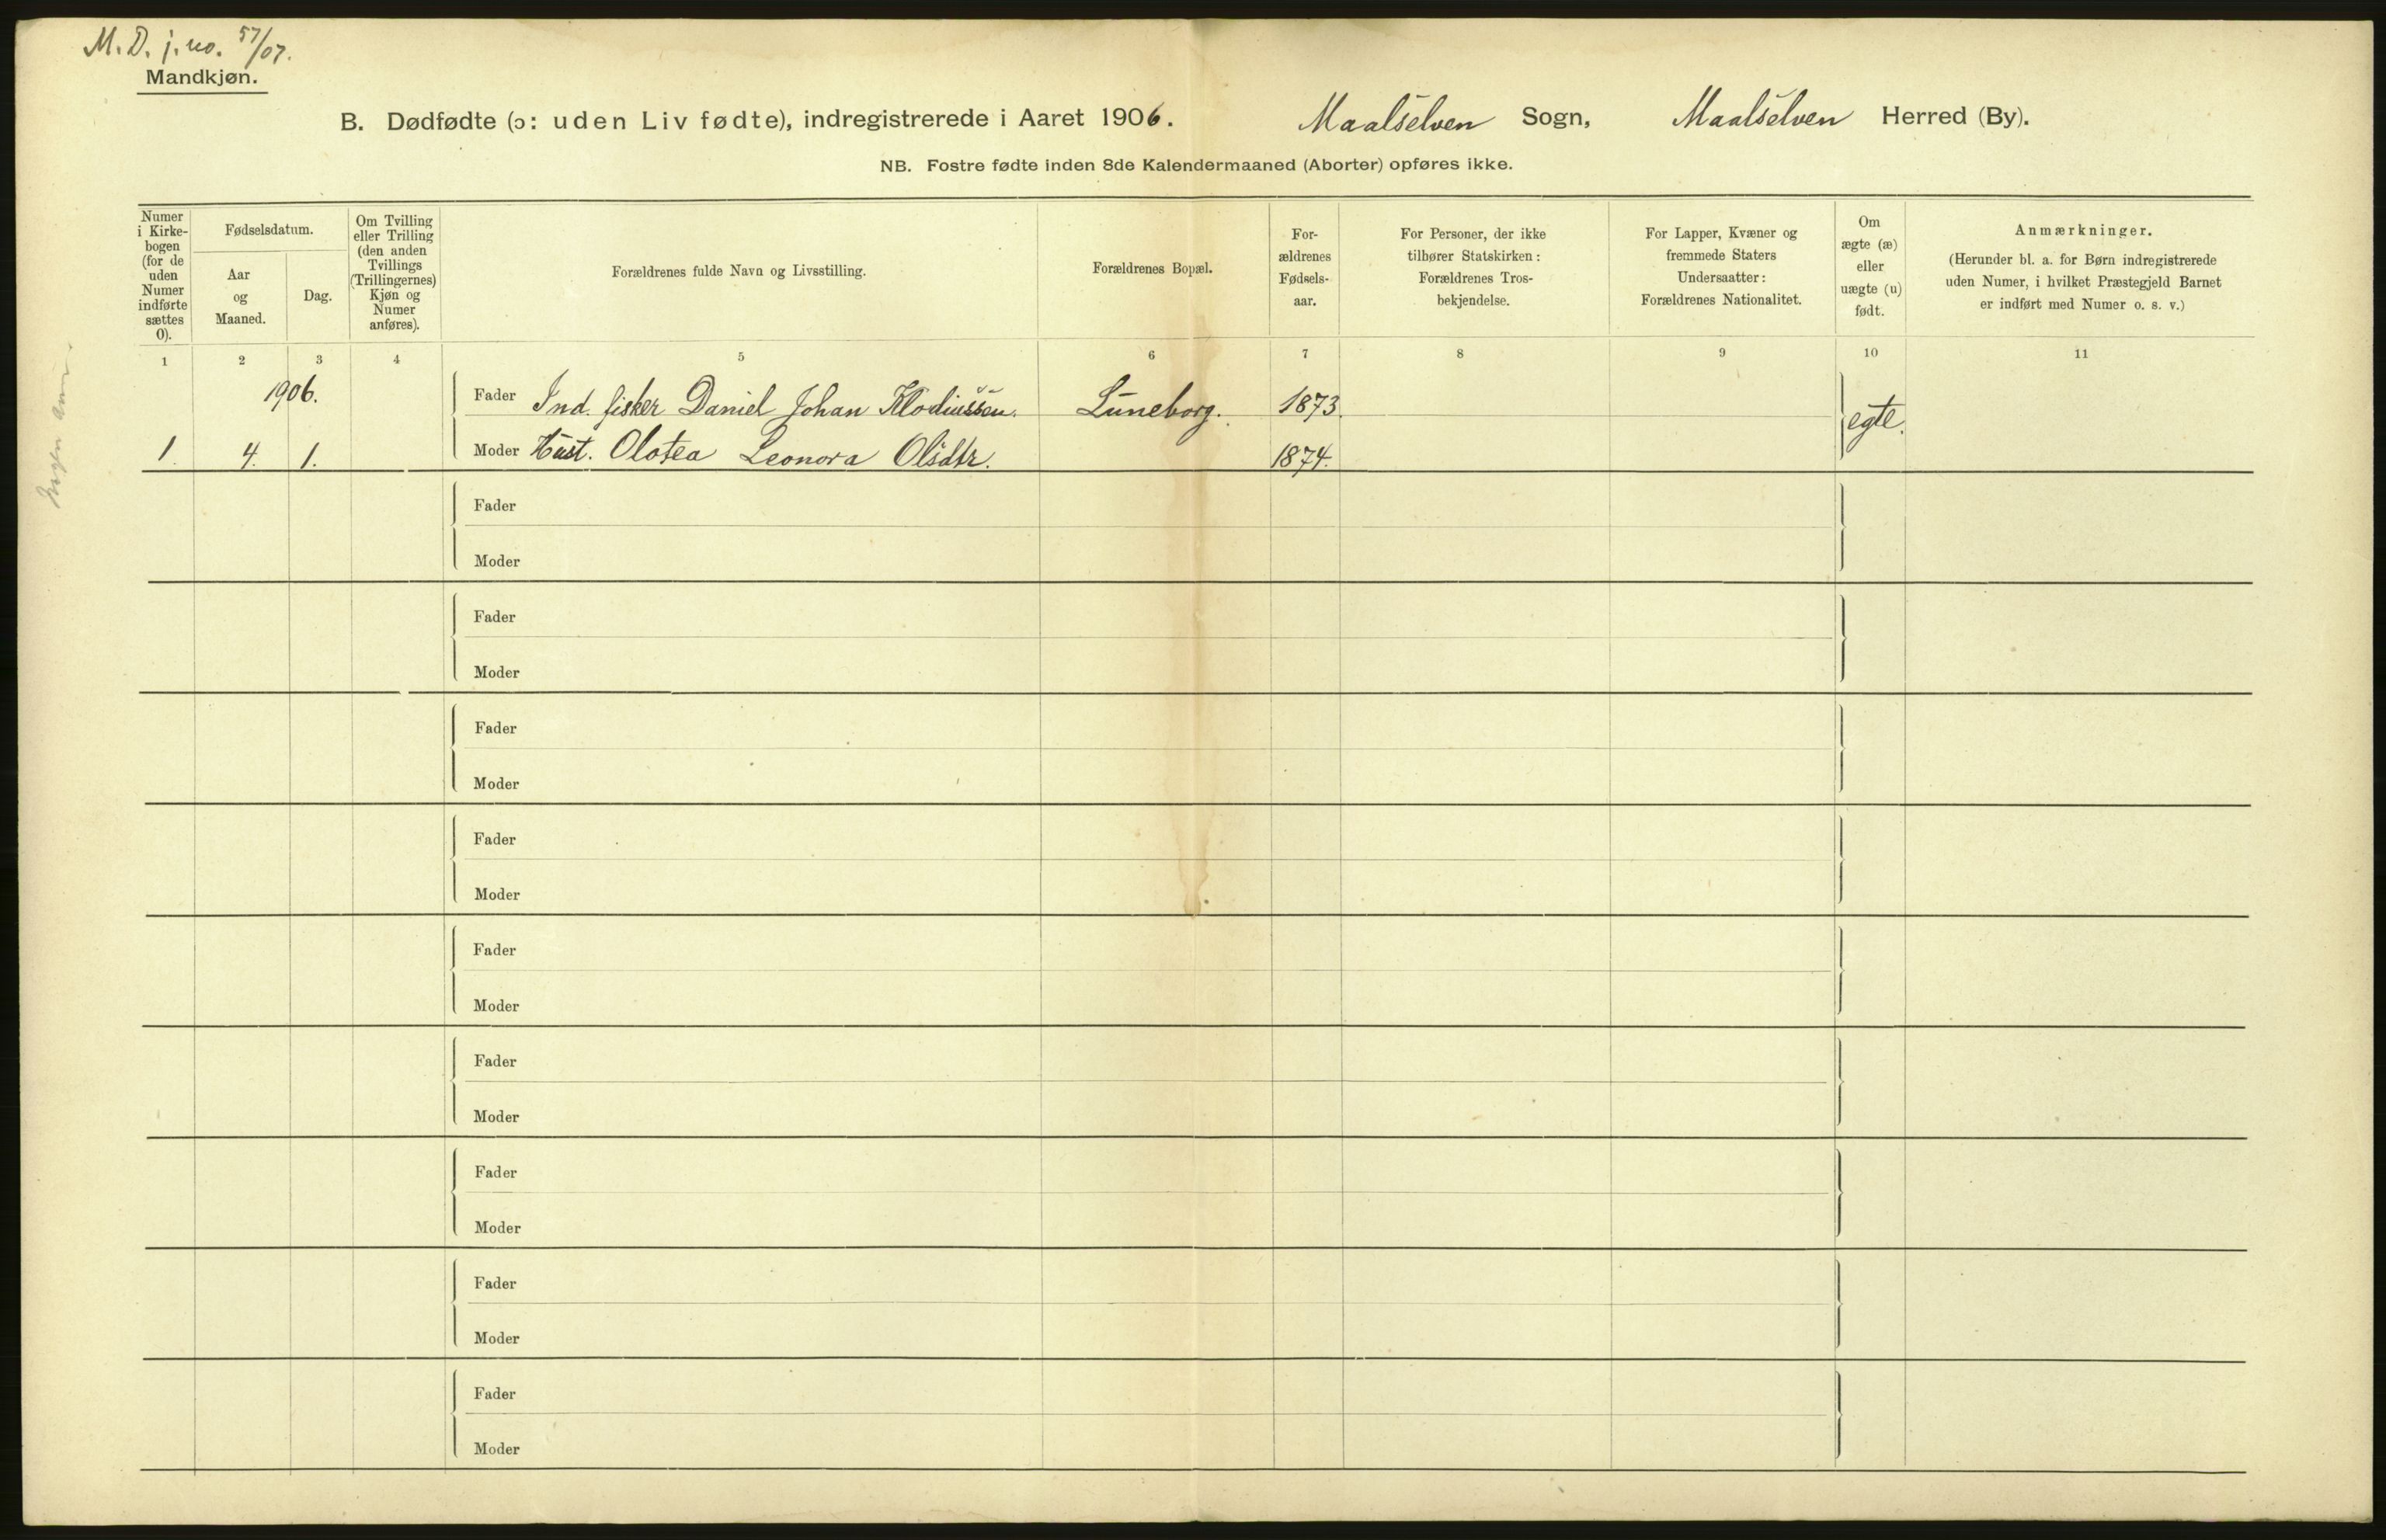 M. D. j. no. 57/07.
Mandkjøn.
B. Dødfødte (ɔ: uden Liv fødte), indregistrerede i Aaret 1906. Maalselven Sogn, Maalselven Herred (By).
NB. Fostre fødte inden 8de Kalendermaaned (Aborter) opføres ikke.
Numer
i Kirke-
bogen
(for de
uden
Numer
indførte
sættes
0).
Fødselsdatum.
Aar
og
Maaned.
Dag.
Om Tvilling
eller Trilling
(den anden
Tvillings
(Trillingernes)
Kjøn og
Numer
anføres).
Forældrenes fulde Navn og Livsstilling.
Forældrenes Bopæl.
For-
ældrenes
Fødsels-
aar.
For Personer, der ikke
tilhører Statskirken:
Forældrenes Tros-
bekjendelse.
For Lapper, Kvæner og
fremmede Staters
Undersaatter:
Forældrenes Nationalitet.
Om
ægte (æ)
eller
uægte (u)
født.
Anmærkninger.
(Herunder bl. a. for Børn indregistrerede
uden Numer, i hvilket Præstegjeld Barnet
er indført med Numer o. s. v.)
1 2 3 4 5 6 7 8 9 10 11
1906. Fader Ind. fisker Daniel Johan Klodiussen. Luneborg. 1873. egte.
1. 4. 1. Moder Hust. Olotea Leonora Olsdtr. 1874.
Fader
Moder
Fader
Moder
Fader
Moder
Fader
Moder
Fader
Moder
Fader
Moder
Fader
Moder
Fader
Moder
Fader
Moder